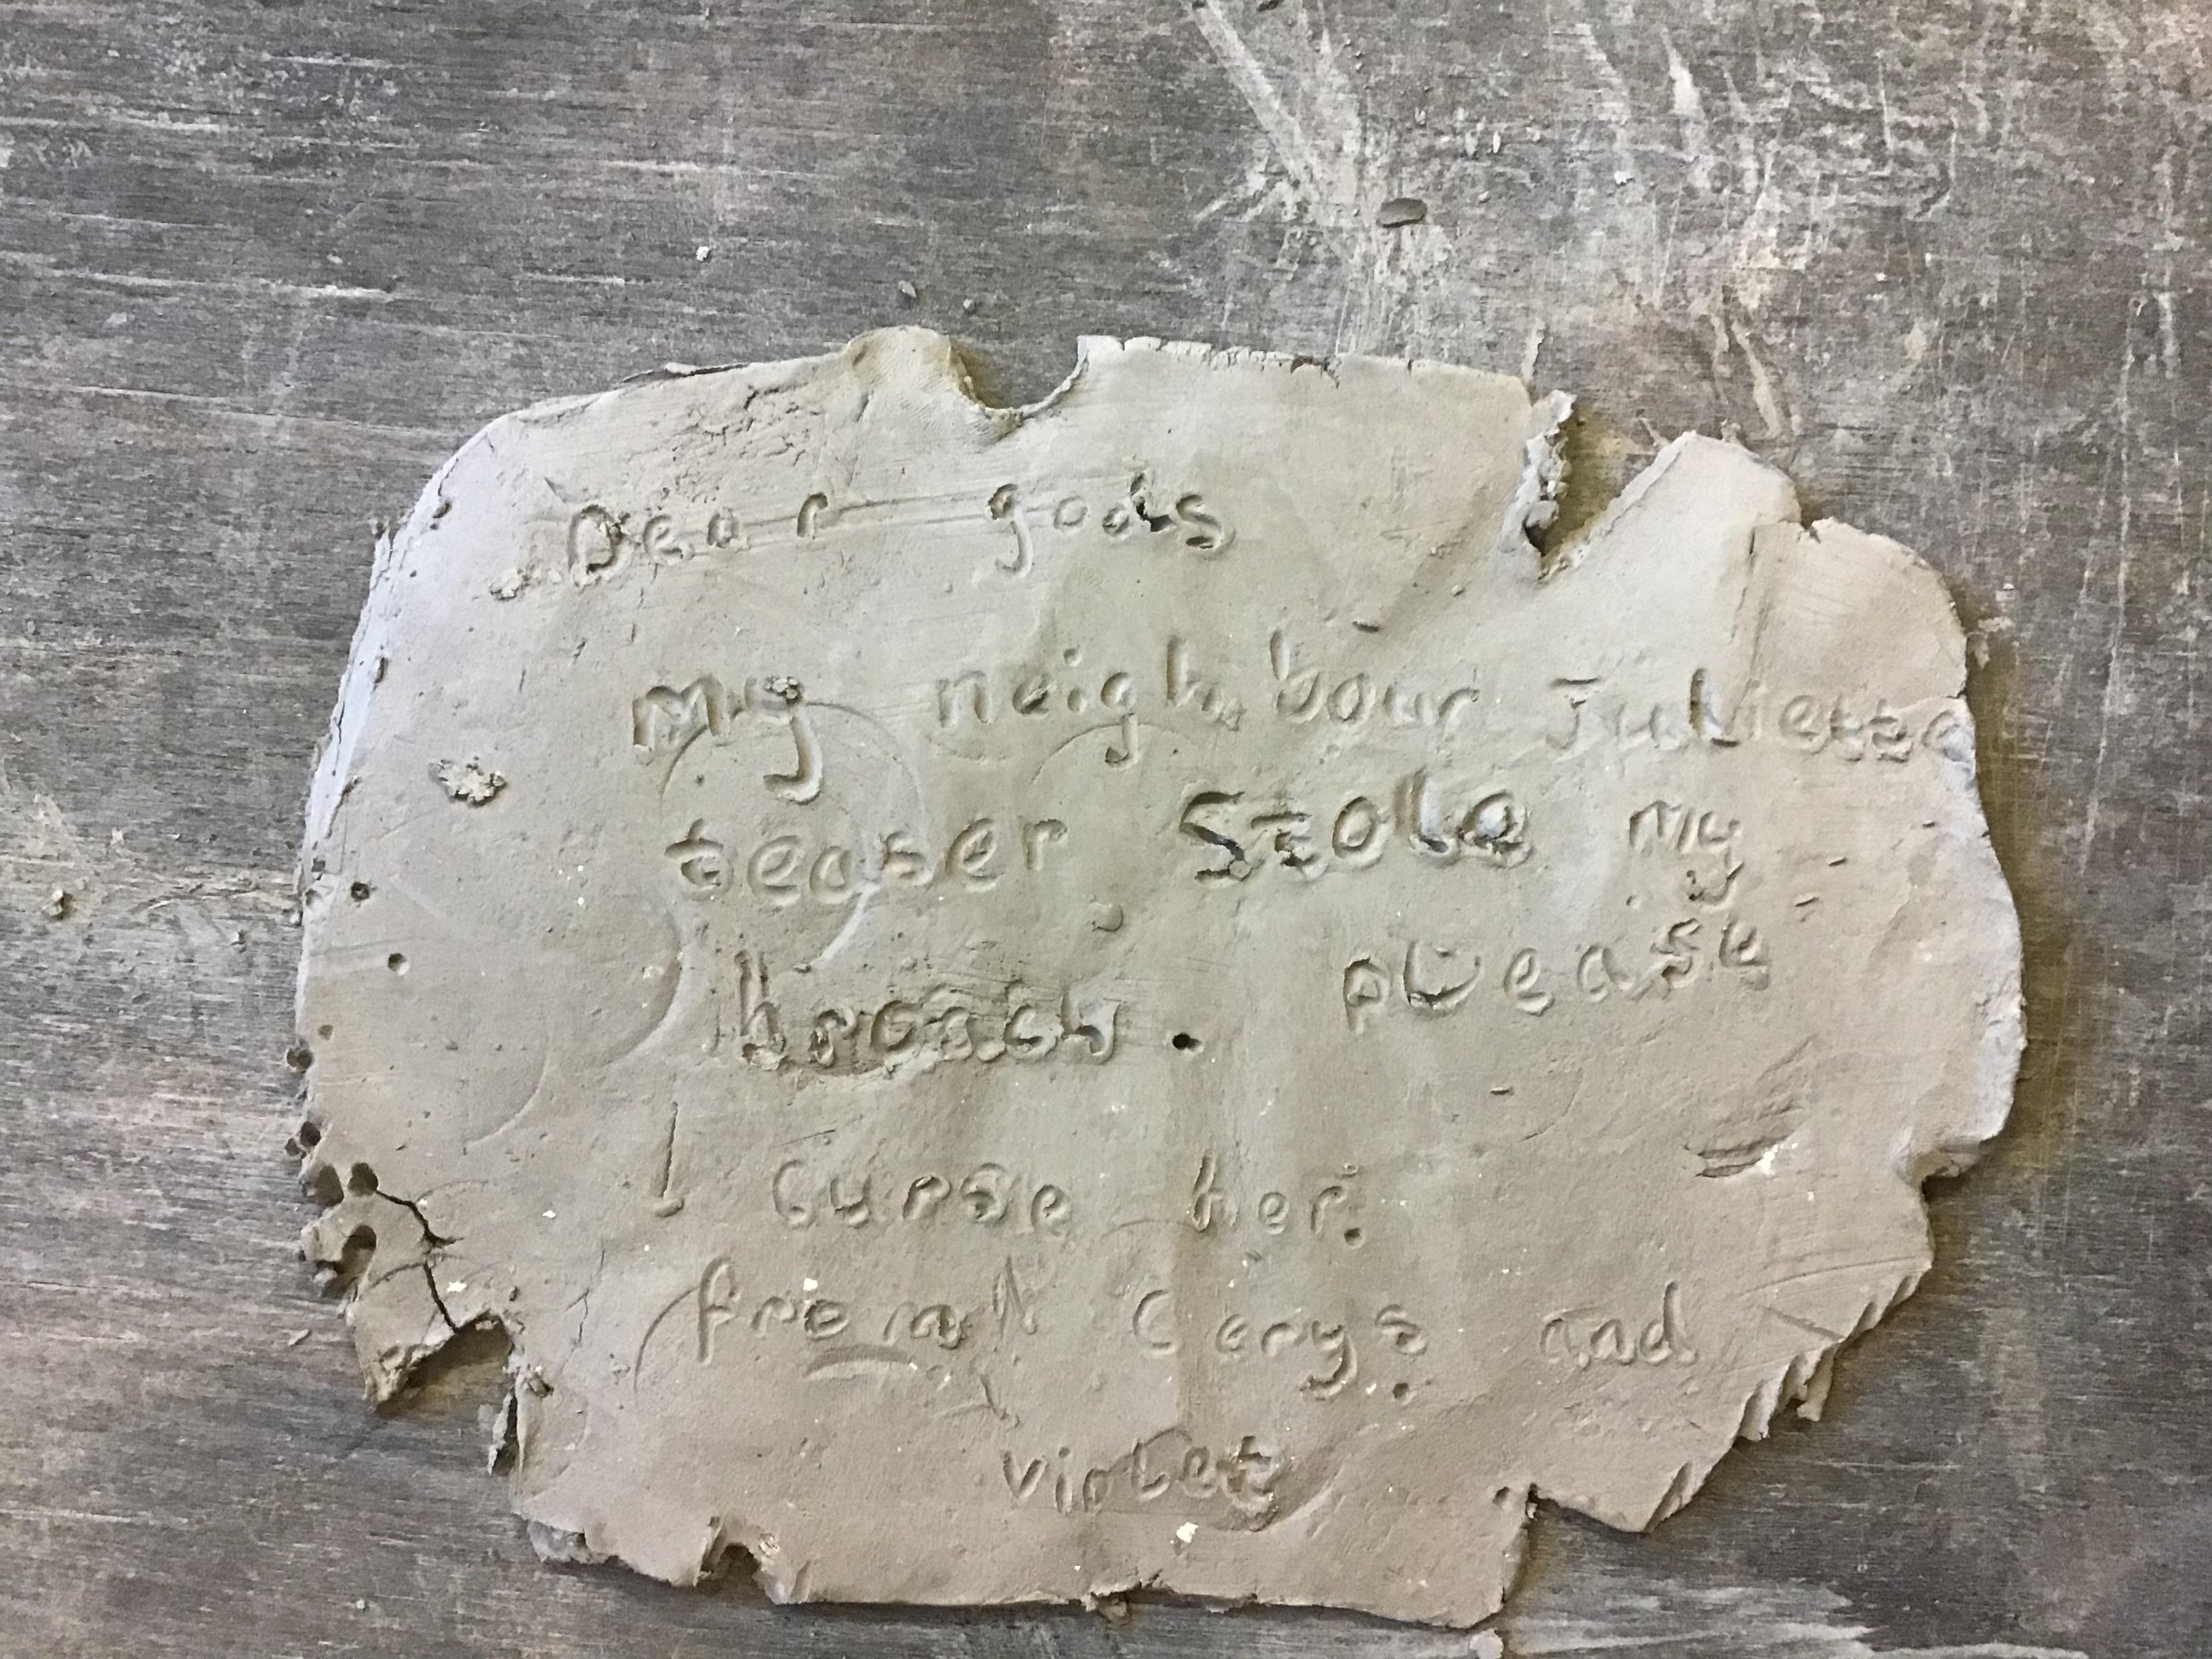 Dear gods
My neighbour Juliette
teaser Stole my
broach. please
I curse her.
from Cerys and
violet